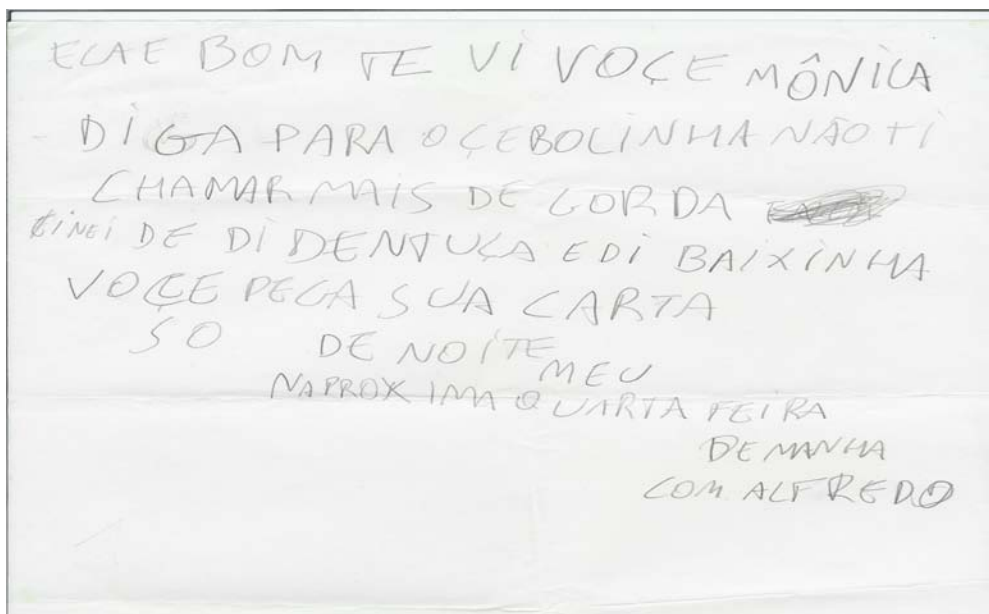 ELAE BOM TE VI VOÇE MÔNICA
DIGA PARA O ÇEBOLINHA NÃO TI
CHAMAR MAIS DE GORDA
DE DI DENTUÇA E DI BAIXINHA
VOÇE PEGA SUA CARTA
SO DE NOITE
MEU
NAPROXIMA QUARTA FEIRA
DE MANHA
COM ALFREDO